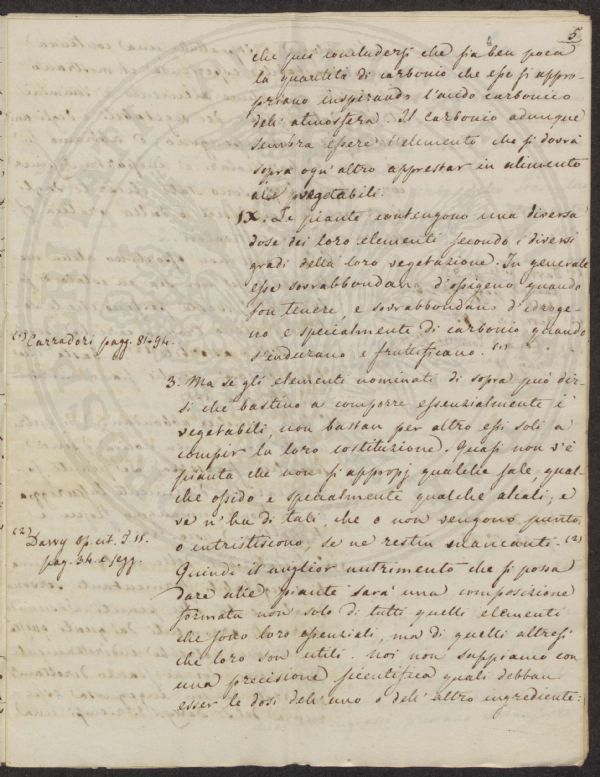 5
che può concludersi che sia ben poca
la quantità di carbonio che esse si appro-
priano inspirando l'acido carbonico
dell'atmosfera. Il carbonio adunque
sembra essere l'elemento che si dovrà
sopra ogn'altro apprestar in alimento
ai vegetabili.
IX. Le piante contengono una diversa
dose dei loro elementi secondo i diversi
gradi della loro vegetazione. In generale
esse sovrabbondano d'ossigeno quando
son tenere, e sovrabbondano d'idroge-
no e specialmente di carbonio quando
s'indurano e fruttificano. (1)
(1) Carradori pagg. 81.94.
3. Ma se gli elementi nominati di sopra può dir-
si che bastino a comporre essenzialmente i
vegetabili, non bastan per altro essi soli a
compir la loro costituzione. Quasi non v'è
pianta che non si appropj qualche sale qual-
che ossido e specialmente qualche alcali, e
ve n'ha di tali, che o non vengono punto,
o intristiscono, se ne restin mancanti. (2)
(2) Davy op. cit. T. II.
pag. 34. e segg.
Quindi il miglior nutrimento che si possa
dare alle piante sarà una composizione
formata non solo di tutti quelli elementi
che sono loro essenziali, ma di quelli altresì
che loro son utili. Noi non sappiamo con
una precisione scientifica quali debban
esser le dosi dell'uno o dell'altro ingrediente: